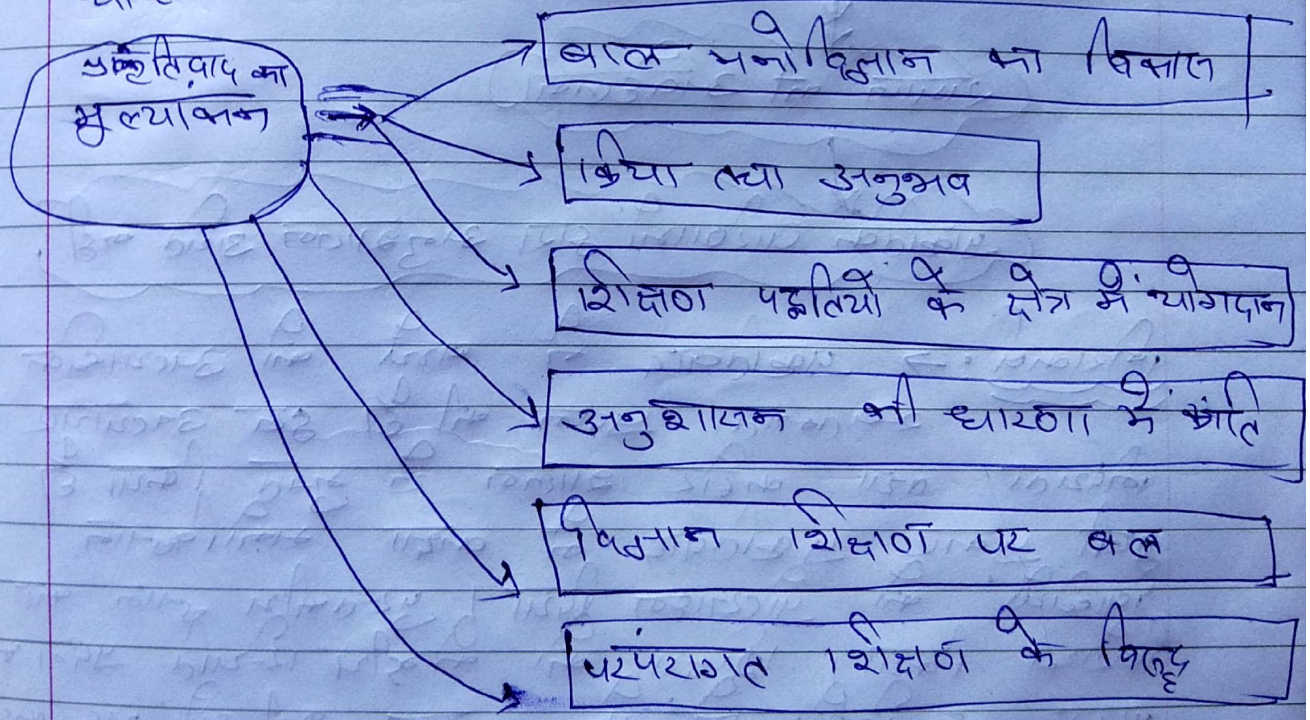 प्रकृतिवाद का
मूल्यांकन
बाल मनोविज्ञान का विकास
क्रिया तथा अनुभव
शिक्षण पद्धतियों के क्षेत्र में योगदान
अनुशासन की धारणा में क्रांति
विज्ञान शिक्षण पर बल
परंपरागत शिक्षण के विरुद्ध